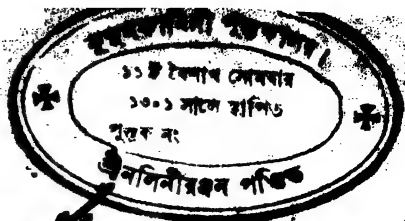 ১১ই বৈশাখ সোমবার
১৩০১ সালে স্থাপিত
পুস্তক নং
শ্রীনলিনীরঞ্জন পণ্ডিত